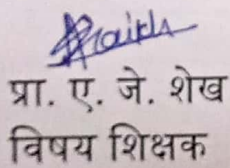 प्रा. ए. जे. शेख
विषय शिक्षक